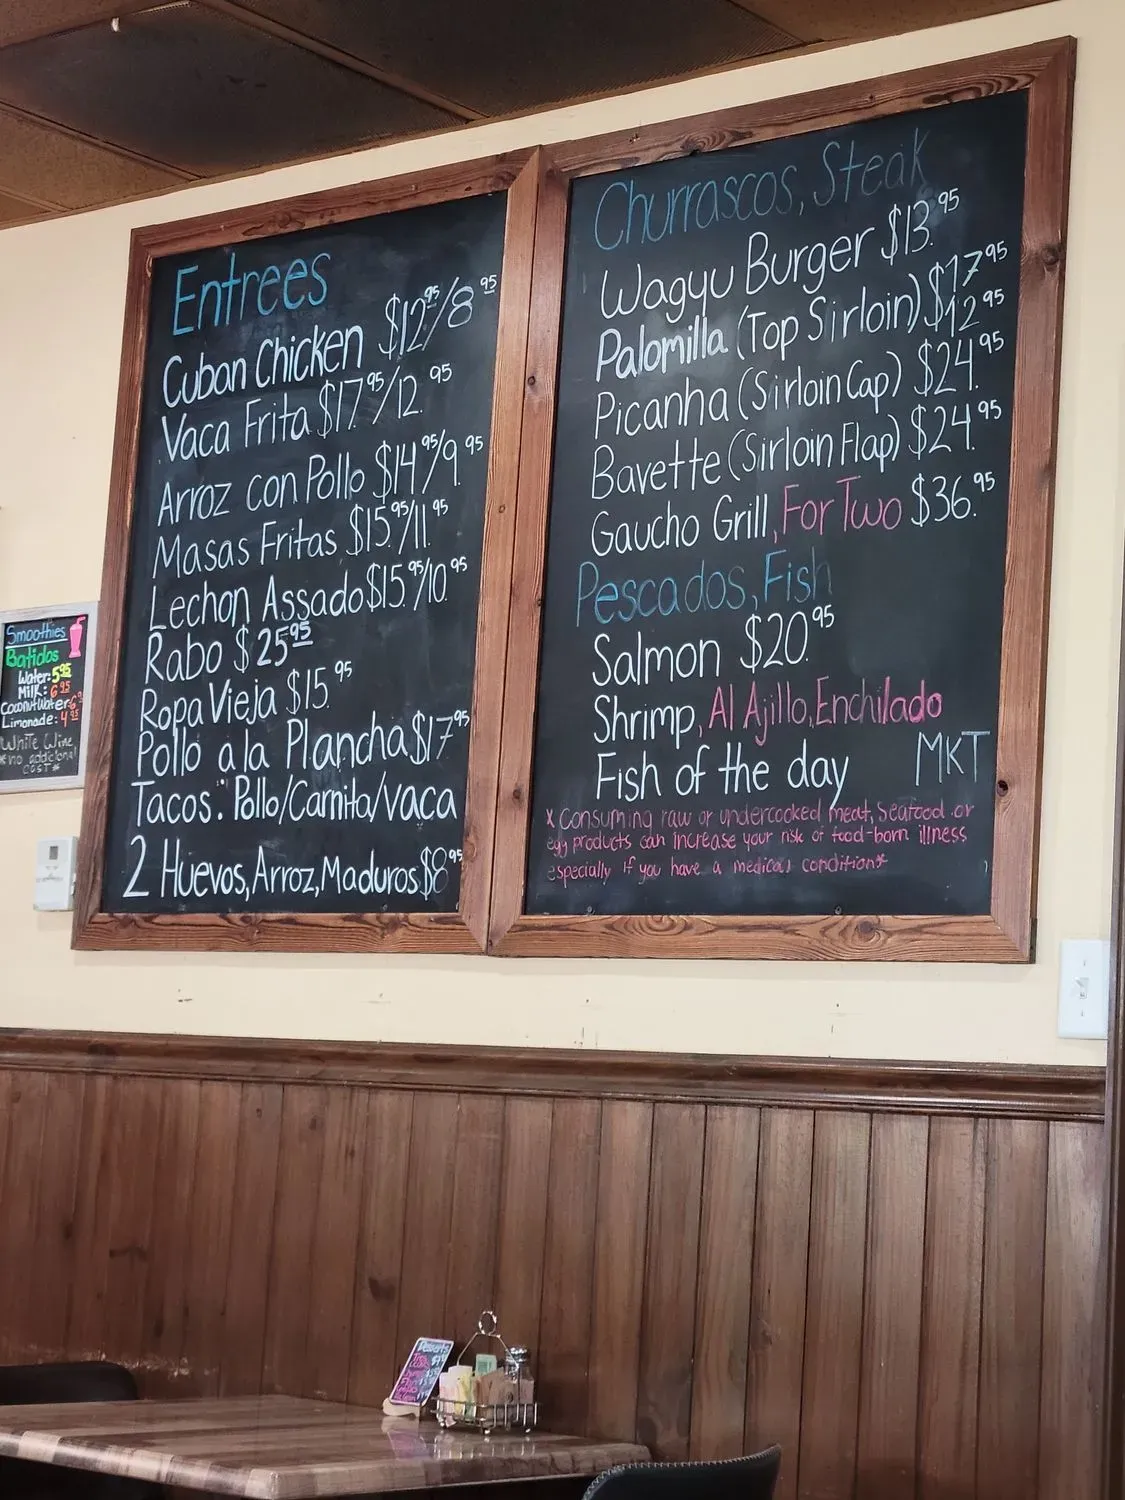 Entrees
Cuban Chicken $12.95/8.95
Vaca Frita $17.95/12.95
Arroz con Pollo $14.95/9.95
Masas Fritas $15.95/11.95
Lechon Assado $15.95/10.95
Rabo $25.95
Ropa Vieja $15.95
Pollo a la Plancha $17.95
Tacos: Pollo/Carnita/vaca
2 Huevos, Arroz, Maduros $8.95
Churrascos, Steak
Wagyu Burger $13.95
Palomilla (Top Sirloin) $17.95
$12.95
Picanha (Sirloin Cap) $24.95
Bavette (Sirloin Flap) $24.95
Gaucho Grill, For Two $36.95
Pescados, Fish
Salmon $20.95
Shrimp, Al Ajillo, Enchilado
Fish of the day MKT
* Consuming raw or undercooked meat, Seafood or
egg products can increase your risk of food-born illness
especially if you have a medical condition*
Smoothies
Batidos
Water: 5.95
Milk: 6.95
Coconut Water: 6
Limonade: 4.95
White Wine
*no addicional
cost*
Desserts